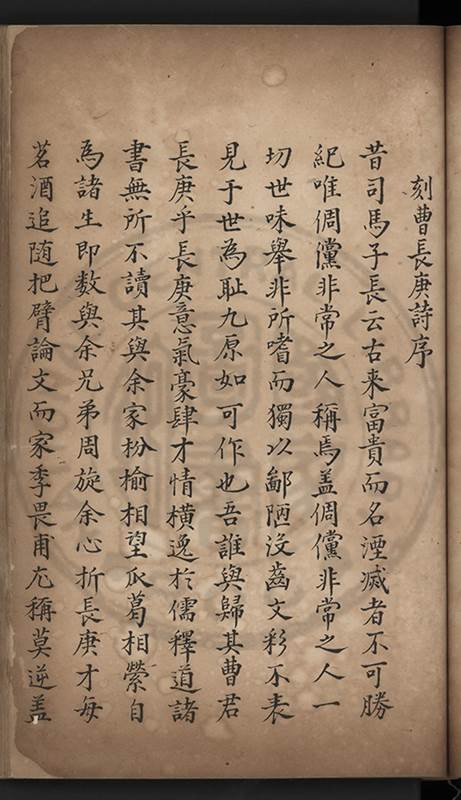 刻曹長庚詩序
昔司馬子長云古来富貴而名湮滅者不可勝
紀唯倜儻非常之人稱焉盖倜儻非常之人一
切世味舉非所嗜而獨以鄙陋没齒文彩不表
見于世為恥九原如可作也吾誰與歸其曹君
長庚乎長庚意氣豪肆才情横逸於儒釋道諸
書無所不讀其與余家枌榆相望瓜葛相縈自
為諸生即数與余兄弟周旋余心折長庚才每
茗酒追随把臂論文而家季畏甫尤稱莫逆盖